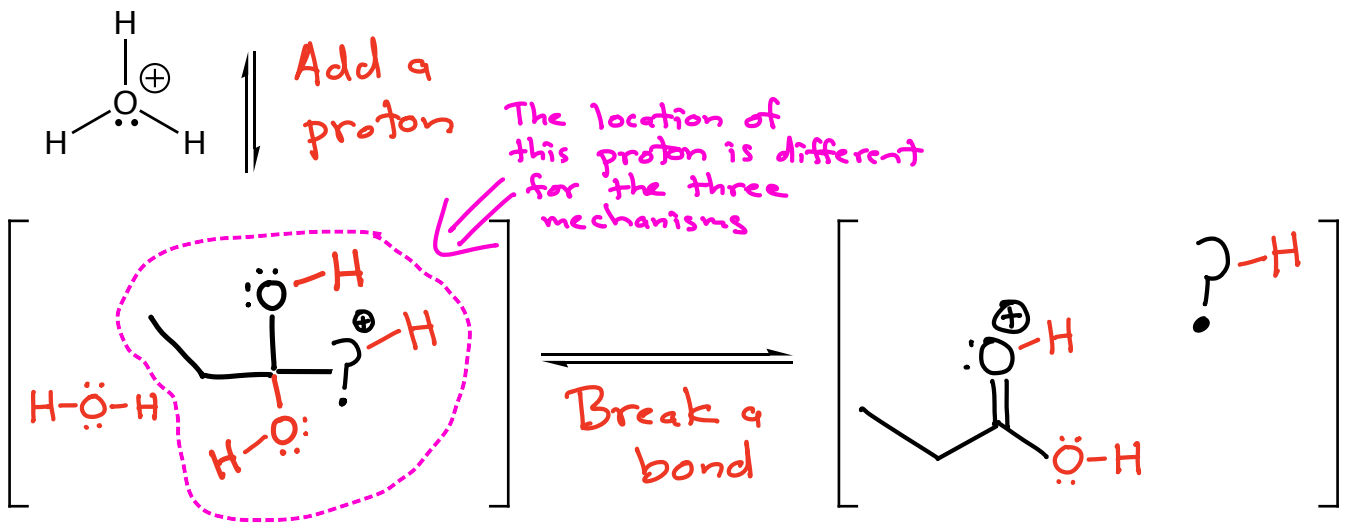 H
O
⊕
H
H
Add a
proton
The location of
this proton is different
for the three
mechanisms
O
H
?
⊕
H
H
O
H
H
O
Break a
bond
⊕
O
H
O
H
?
H